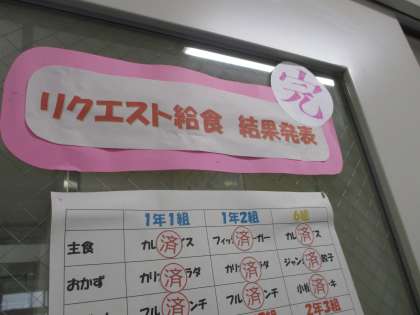 完
リクエスト給食 結果発表
1年1組 1年2組 6組
主食 カレ 済 イス フィッ 済 ーガー カレ 済 イス
おかず カリ 済 ラダ カリ 済 ラダ ジャン 済 餃子
済 ンチ フル 済 ンチ 小松 済 キ
2年3組